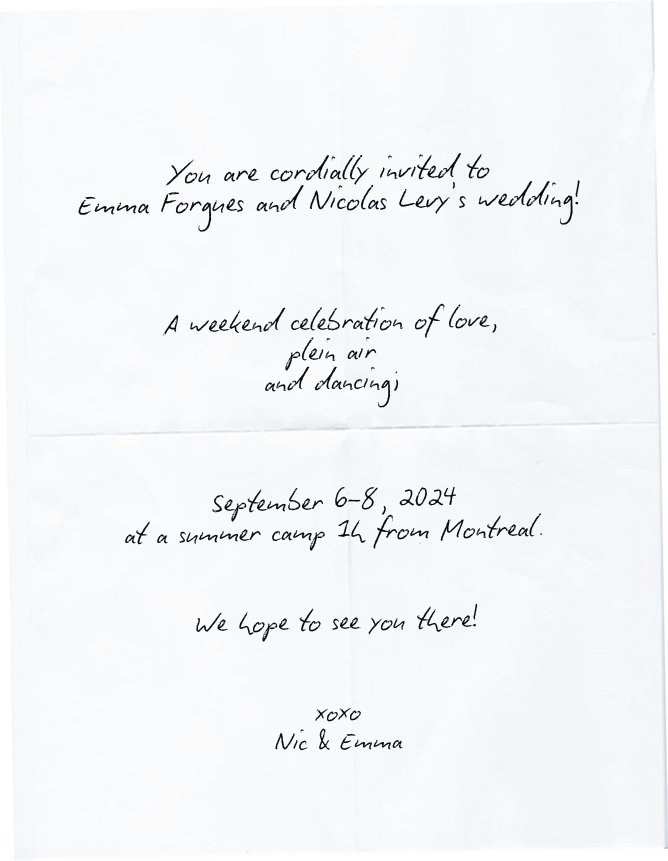 You are cordially invited to
Emma Forgues and Nicolas Levy's wedding!
A weekend celebration of love,
plein air
and dancing;
September 6-8, 2024
at a summer camp 1h from Montreal.
We hope to see you there!
xoxo
Nic & Emma